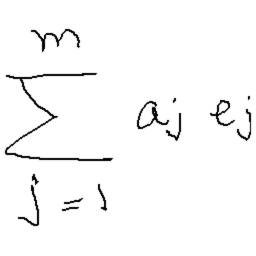 \sum_{j=1}^{m} a_j e_j